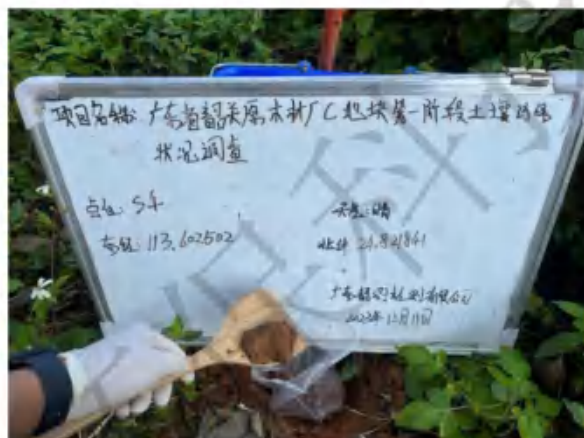 项目名称: 广东省韶关原木材厂C地块第一阶段土壤污染
状况调查
点位: S4
天气: 晴
东经: 113.602502
北纬 24.821841
广东韶测检测有限公司
2023年12月11日